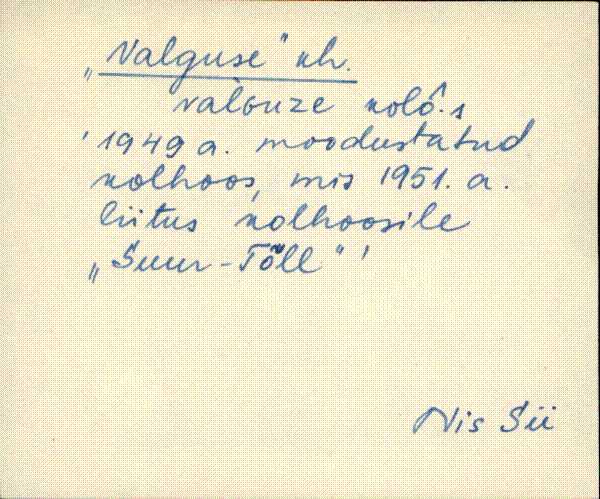 „Valguse" kh.
valGuze kolô.s
'1949 a. moodustatud
kolhoos, mis 1951. a.
liitus kolhoosile
„Suur-Tõll"'
Nis Sii